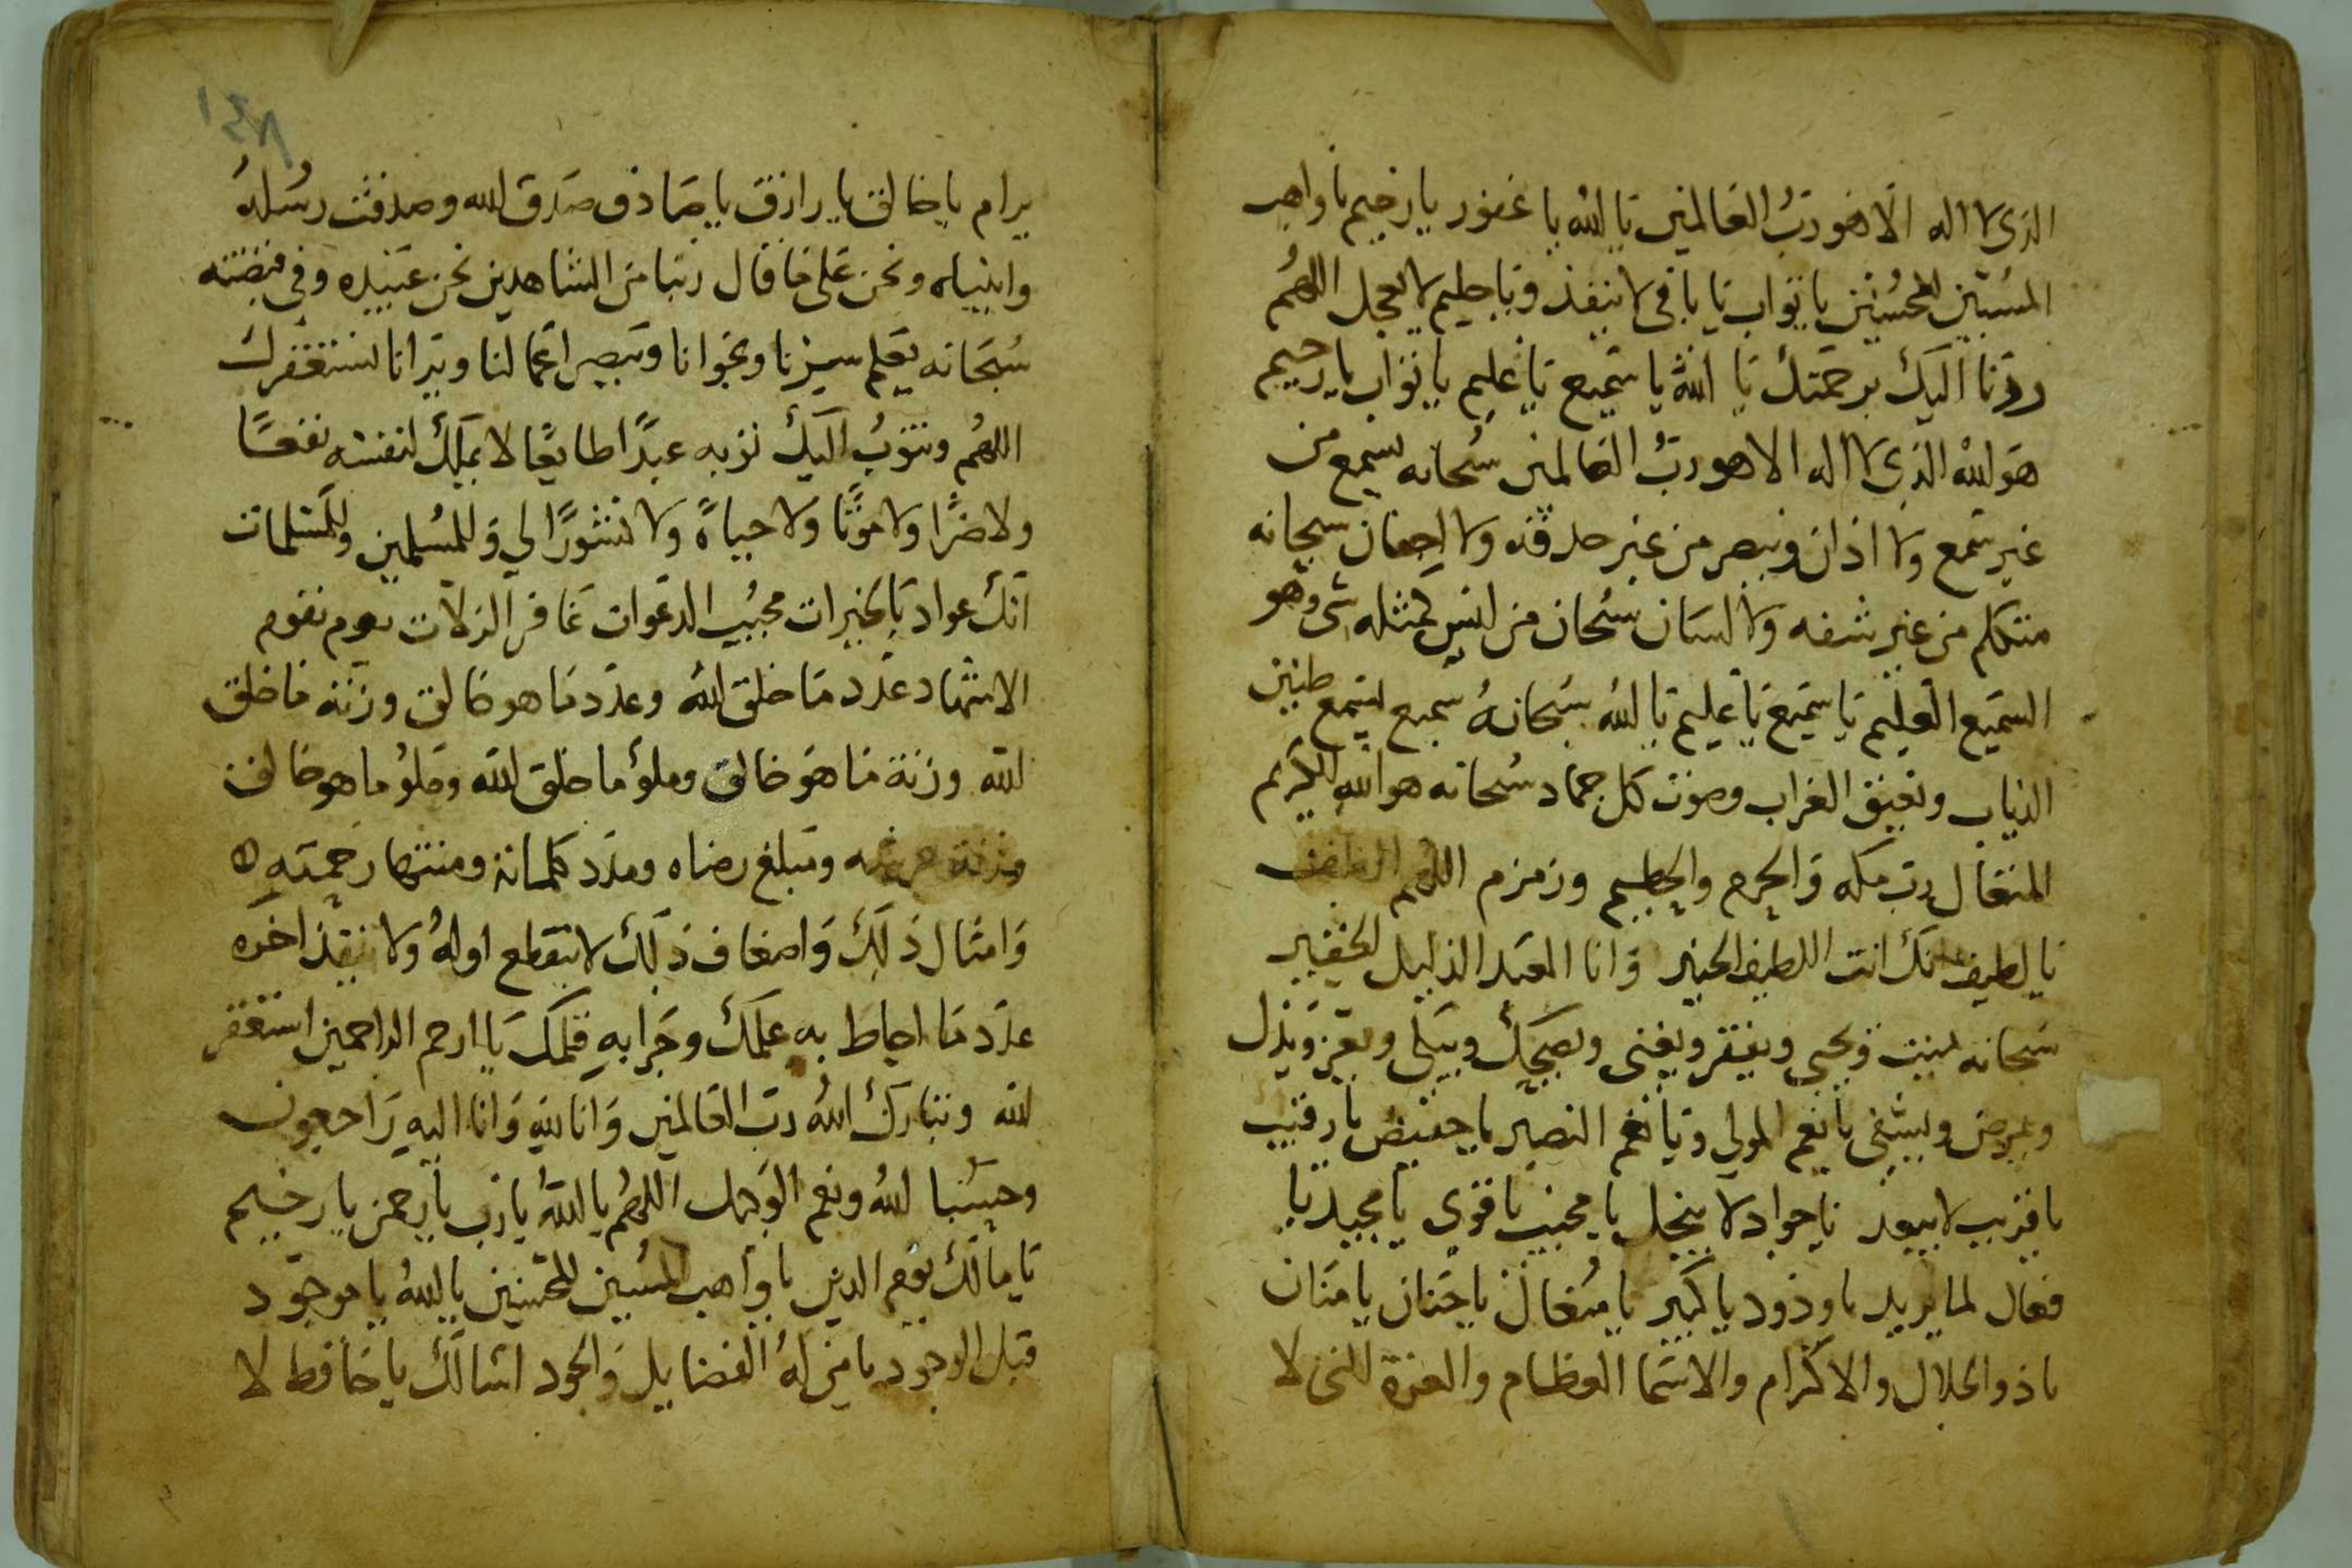 الذي لا اله الا هو رب العالمين يا الله يا غفور يا رحيم يا واهب
المسيين للمحسنين يا تواب يا باقي لا ينفذ ويا حليم لا يعجل اللهم
ردنا اليك برحمتك يا الله يا سميع يا عليم يا تواب يا رحيم
هو الله الذي لا اله الا هو رب العالمين سبحانه يسمع من
غير سمع ولا اذان ويبصر من غير حدقه ولا اجفان سبحانه
متكلم من غير شفه ولا لسان سبحان من ليس كمثله شي وهو
السميع العليم يا سميع يا عليم يا الله سبحانه سميع يسمع طنين
الذباب ونعيق الغراب وصوت كل جماد سبحانه هو الله الكريم
المتعال رب مكه والحرم والحطيم وزمزم اللهم
يا لطيف انك انت اللطيف الخبير وانا العبد الذليل الحقير
سبحانه يميت ويحيي ويفقر ويغني ويضحك ويبكي ويعز ويذل
ويمرض ويشفي يا نعم المولي ويا نعم النصير يا حفيض يا رقيب
يا قريب لا يبعد يا جواد لا يبخل يا مجيب يا قوي يا مجيد يا
فعال لما يريد يا ودود يا كبير يا متعال يا حنان يا منان
يا ذو الجلال والاكرام والاسما العظام والعزة التي لا
١٤٨
يرام يا خالق يا رازق يا صادق صدق الله وصدقت رسله
وانبياه ونحن على ما قال ربنا من الشاهدين نحن عبيده وفي قبضته
سبحانه يعلم سرنا ونجوانا ويبصر اعمالنا ويرانا نستغفرك
اللهم ونتوب اليك توبه عبدًا طايعًا لا يملك لنفسه نفعًا
ولا ضرًا ولا موتًا ولا حياةً ولا نشورًا لي وللمسلمين وللمسلمات
انك عواد بالخيرات مجيب الدعوات غافر الزلات يوم يقوم
الاشهاد عدد ما خلق الله وعدد ما هو خالق وزنة ما خلق
الله وزنة ما هو خالق وملؤ ما خلق الله وملؤ ما هو خالق
وزنة عرشه ومبلغ رضاه وعدد كلماته ومنتها رحمته
وامثال ذلك واضعاف ذلك لا ينقطع اوله ولا ينفذ اخره
عدد ما احاط به علمك وجرا به قلمك يا ارحم الراحمين استغفر
الله وتبارك الله رب العالمين وانا لله وانا اليه راجعون
وحسبنا الله ونعم الوكيل اللهم يا الله يا رب يا رحمن يا رحيم
يا مالك يوم الدين يا واهب المسيين للمحسنين يا الله يا موجود
قبل الوجود يا من له الفضايل والجود اسالك يا حافظ لا